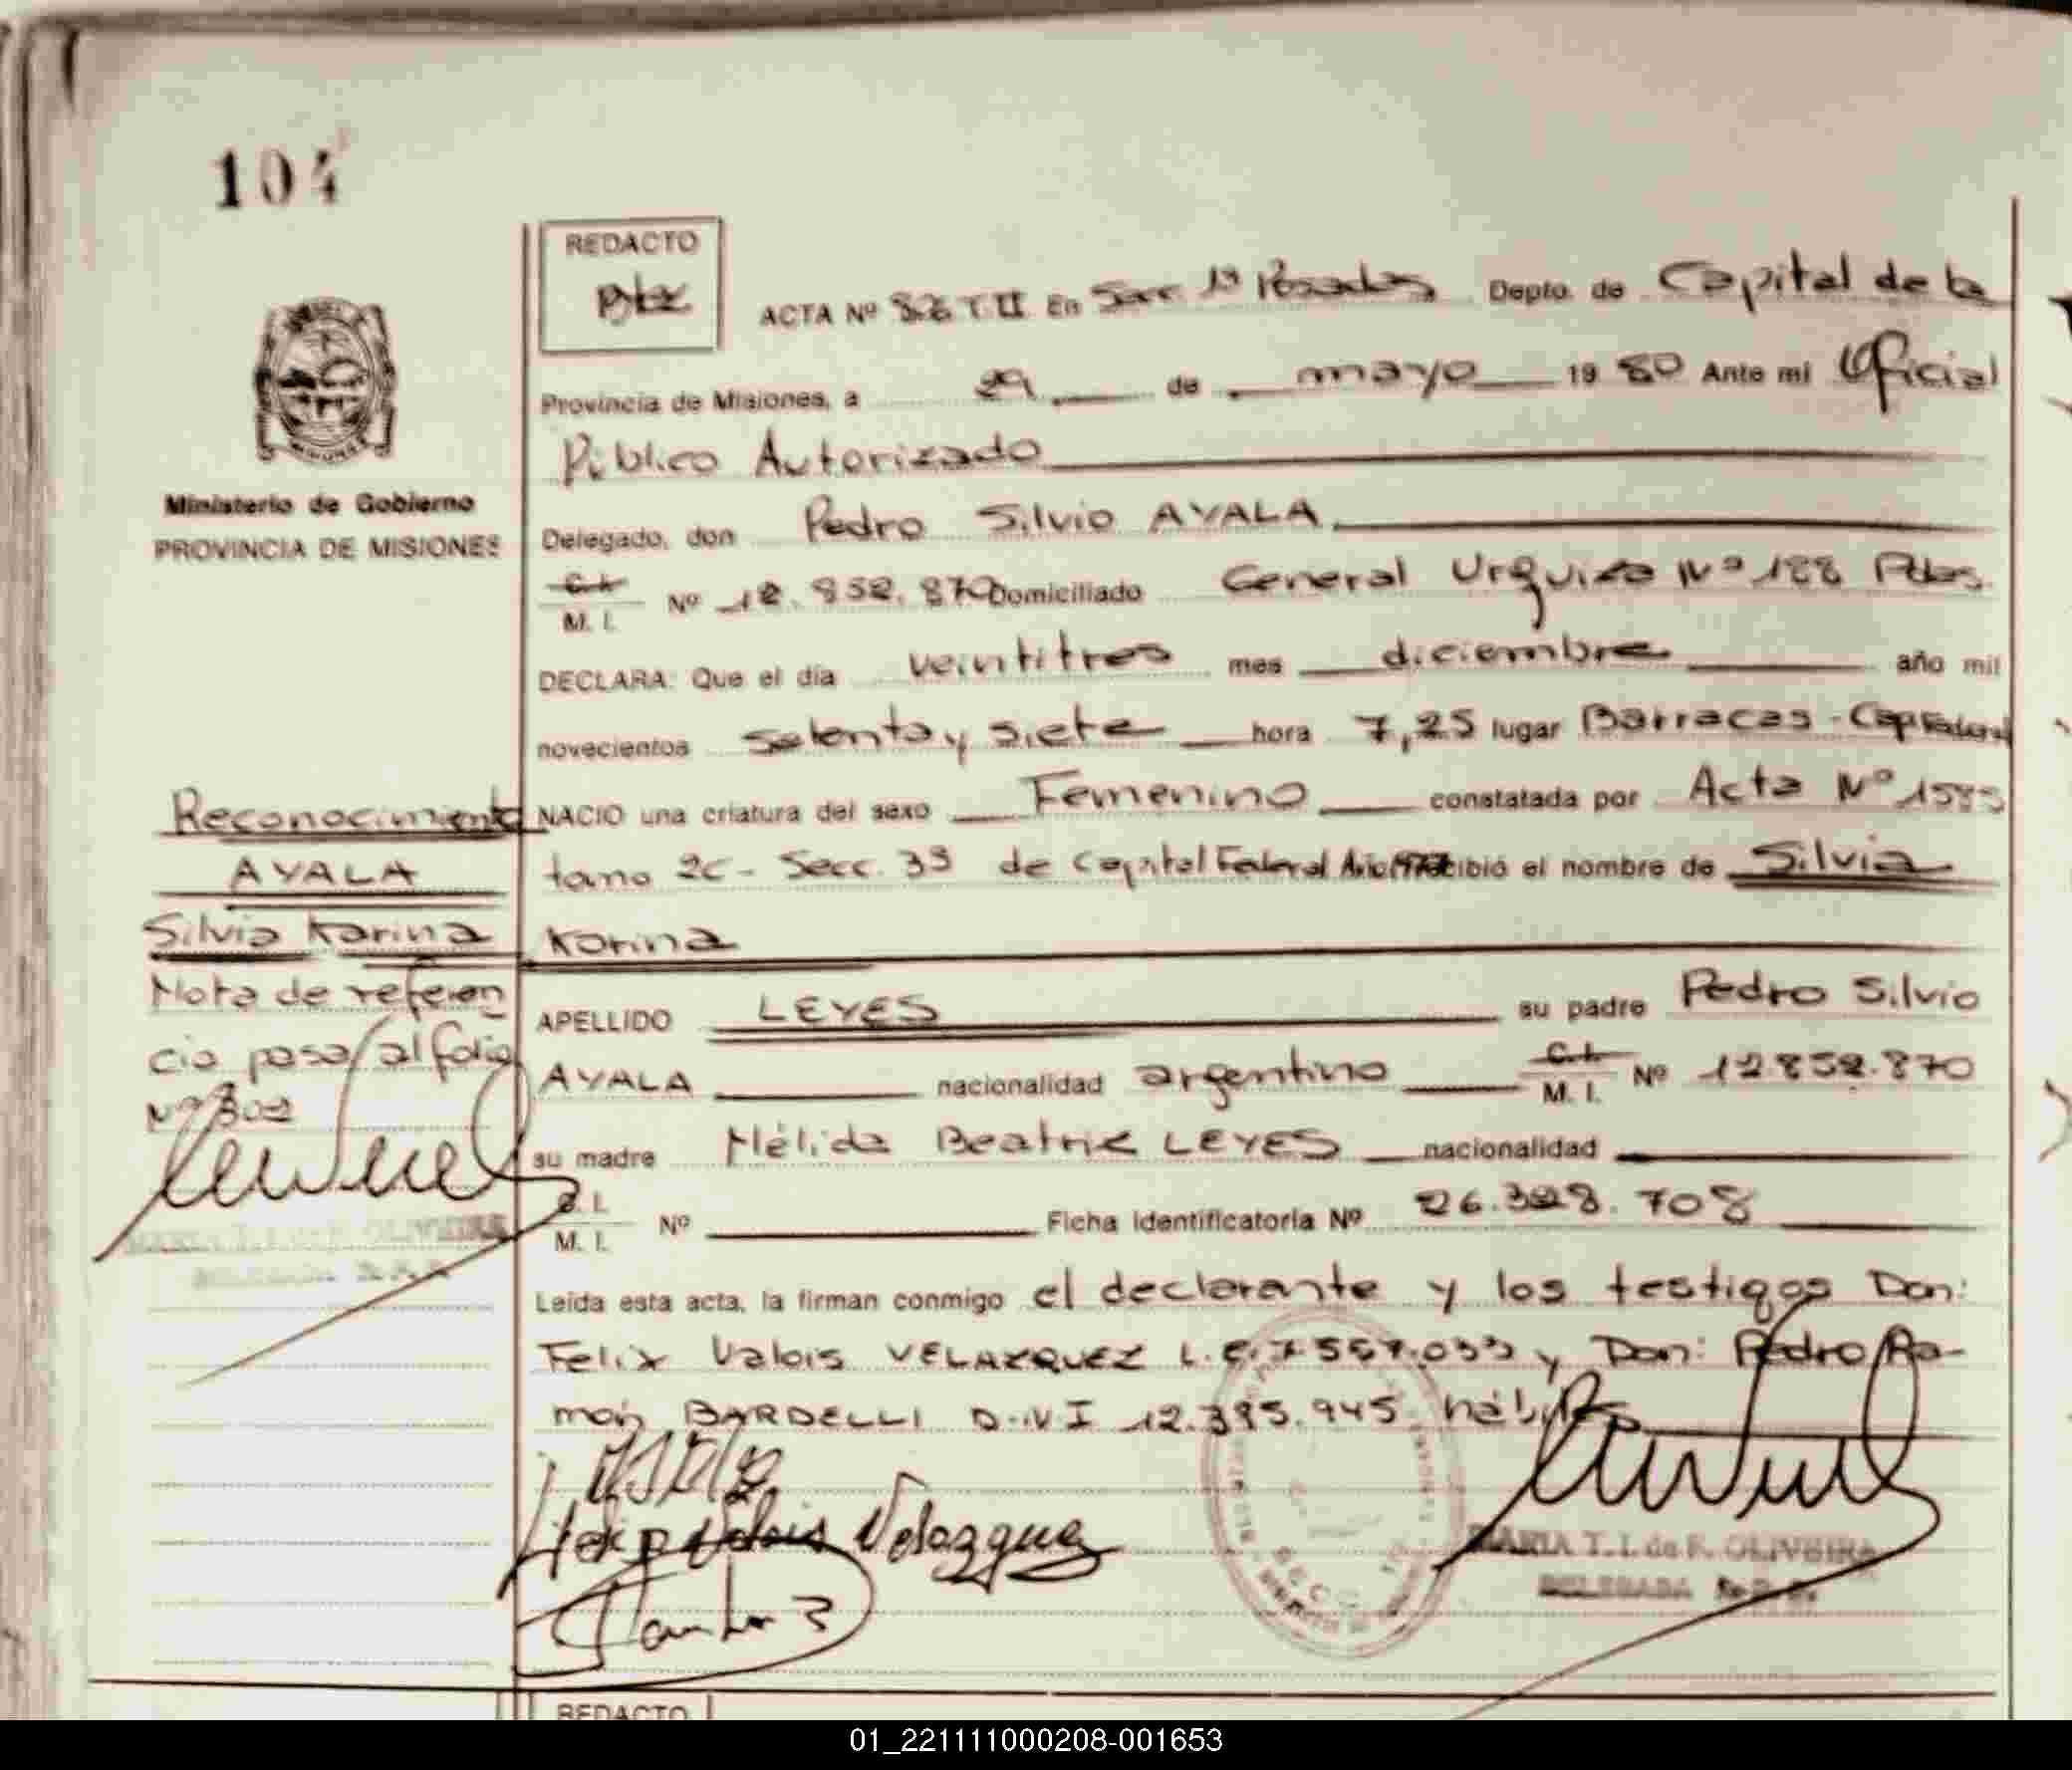 104
REDACTO
ACTA Nº 326 T II En Secc 1ª Posadas Depto. de Capital de la
Provincia de Misiones, a 29 de mayo 19 80 Ante mi Oficial
Público Autorizado
Ministerio de Gobierno
PROVINCIA DE MISIONES
Delegado, don Pedro Silvio AYALA
C. I.
M. I. Nº 12.852.870 Domiciliado General Urquiza Nº 188 Pdas.
DECLARA: Que el día veintitres mes diciembre año mil
novecientos setenta y siete hora 7,25 lugar Barracas - Cap Federal
NACIO una criatura del sexo Femenino constatada por Acta Nº
tomo 2C - Secc. 3ª de Capital Federal Año 1977 recibió el nombre de Silvia
Karina
Reconocimiento
AYALA
Silvia Karina
Nota de referen
cia pasa al folio
Nº 302
MARIA T. I. de F. OLIVEIRA
DELEGADA R.P.P.
APELLIDO LEYES su padre Pedro Silvio
AYALA nacionalidad argentino C. I.
M. I. Nº 12.852.870
su madre Nélida Beatriz LEYES nacionalidad
C. I.
M. I. Nº Ficha Identificatoria Nº 26.328.708
Leída esta acta, la firman conmigo el declarante y los testigos Don:
Felix Valois VELAZQUEZ L.E. 7.557.033 y Don: Pedro Ra-
món BARDELLI D.N.I 12.395.945 hábiles
Felix Valois Velazquez
MARIA T. I. de F. OLIVEIRA
DELEGADA R.P.P.
REDACTO
01_221111000208-001653